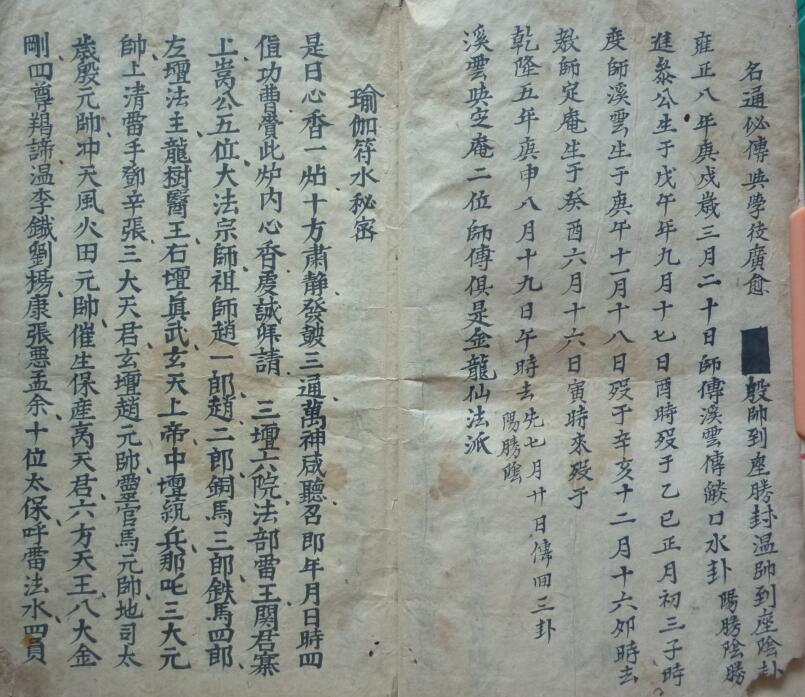 名通秘傳與學徒廣愈 殷帥到座勝封溫帥到座陰卦
雍正八年庚戍歲三月二十日師傅溪雲傳燄口水卦陽勝陰勝
進泰公生于戊午年九月十七日酉時歿于乙巳正月初三子時
度師溪雲生于庚午十一月十八日歿于辛亥十二月十六夘時去
教師定庵生于癸酉六月十六日寅時來歿于
乾隆五年庚申八月十九日午時去先七月廿日傳回三卦
陽勝陰
溪雲與定庵二位師傅俱是金龍仙法派
瑜伽符水秘密
是日心香一炷十方肅静發皷三通萬神咸聽召即年月日時四
值功曹賫此炉内心香虔誠拜請三壇六院法部雷王関君寨
上嵩公五位大法宗師祖師趙一郎趙二郎銅馬三郎鉄馬四郎
左壇法主龍樹醫王右壇真武玄天上帝中壇統兵那吒三大元
帥上清雷手鄧辛張三大天君玄壇趙元帥靈官馬元帥地司太
歲殷元帥冲天風火田元帥催生保産高天君六方天王八大金
剛四尊羯諦温李鐵劉楊康張恶孟余十位太保呼雷法水四員